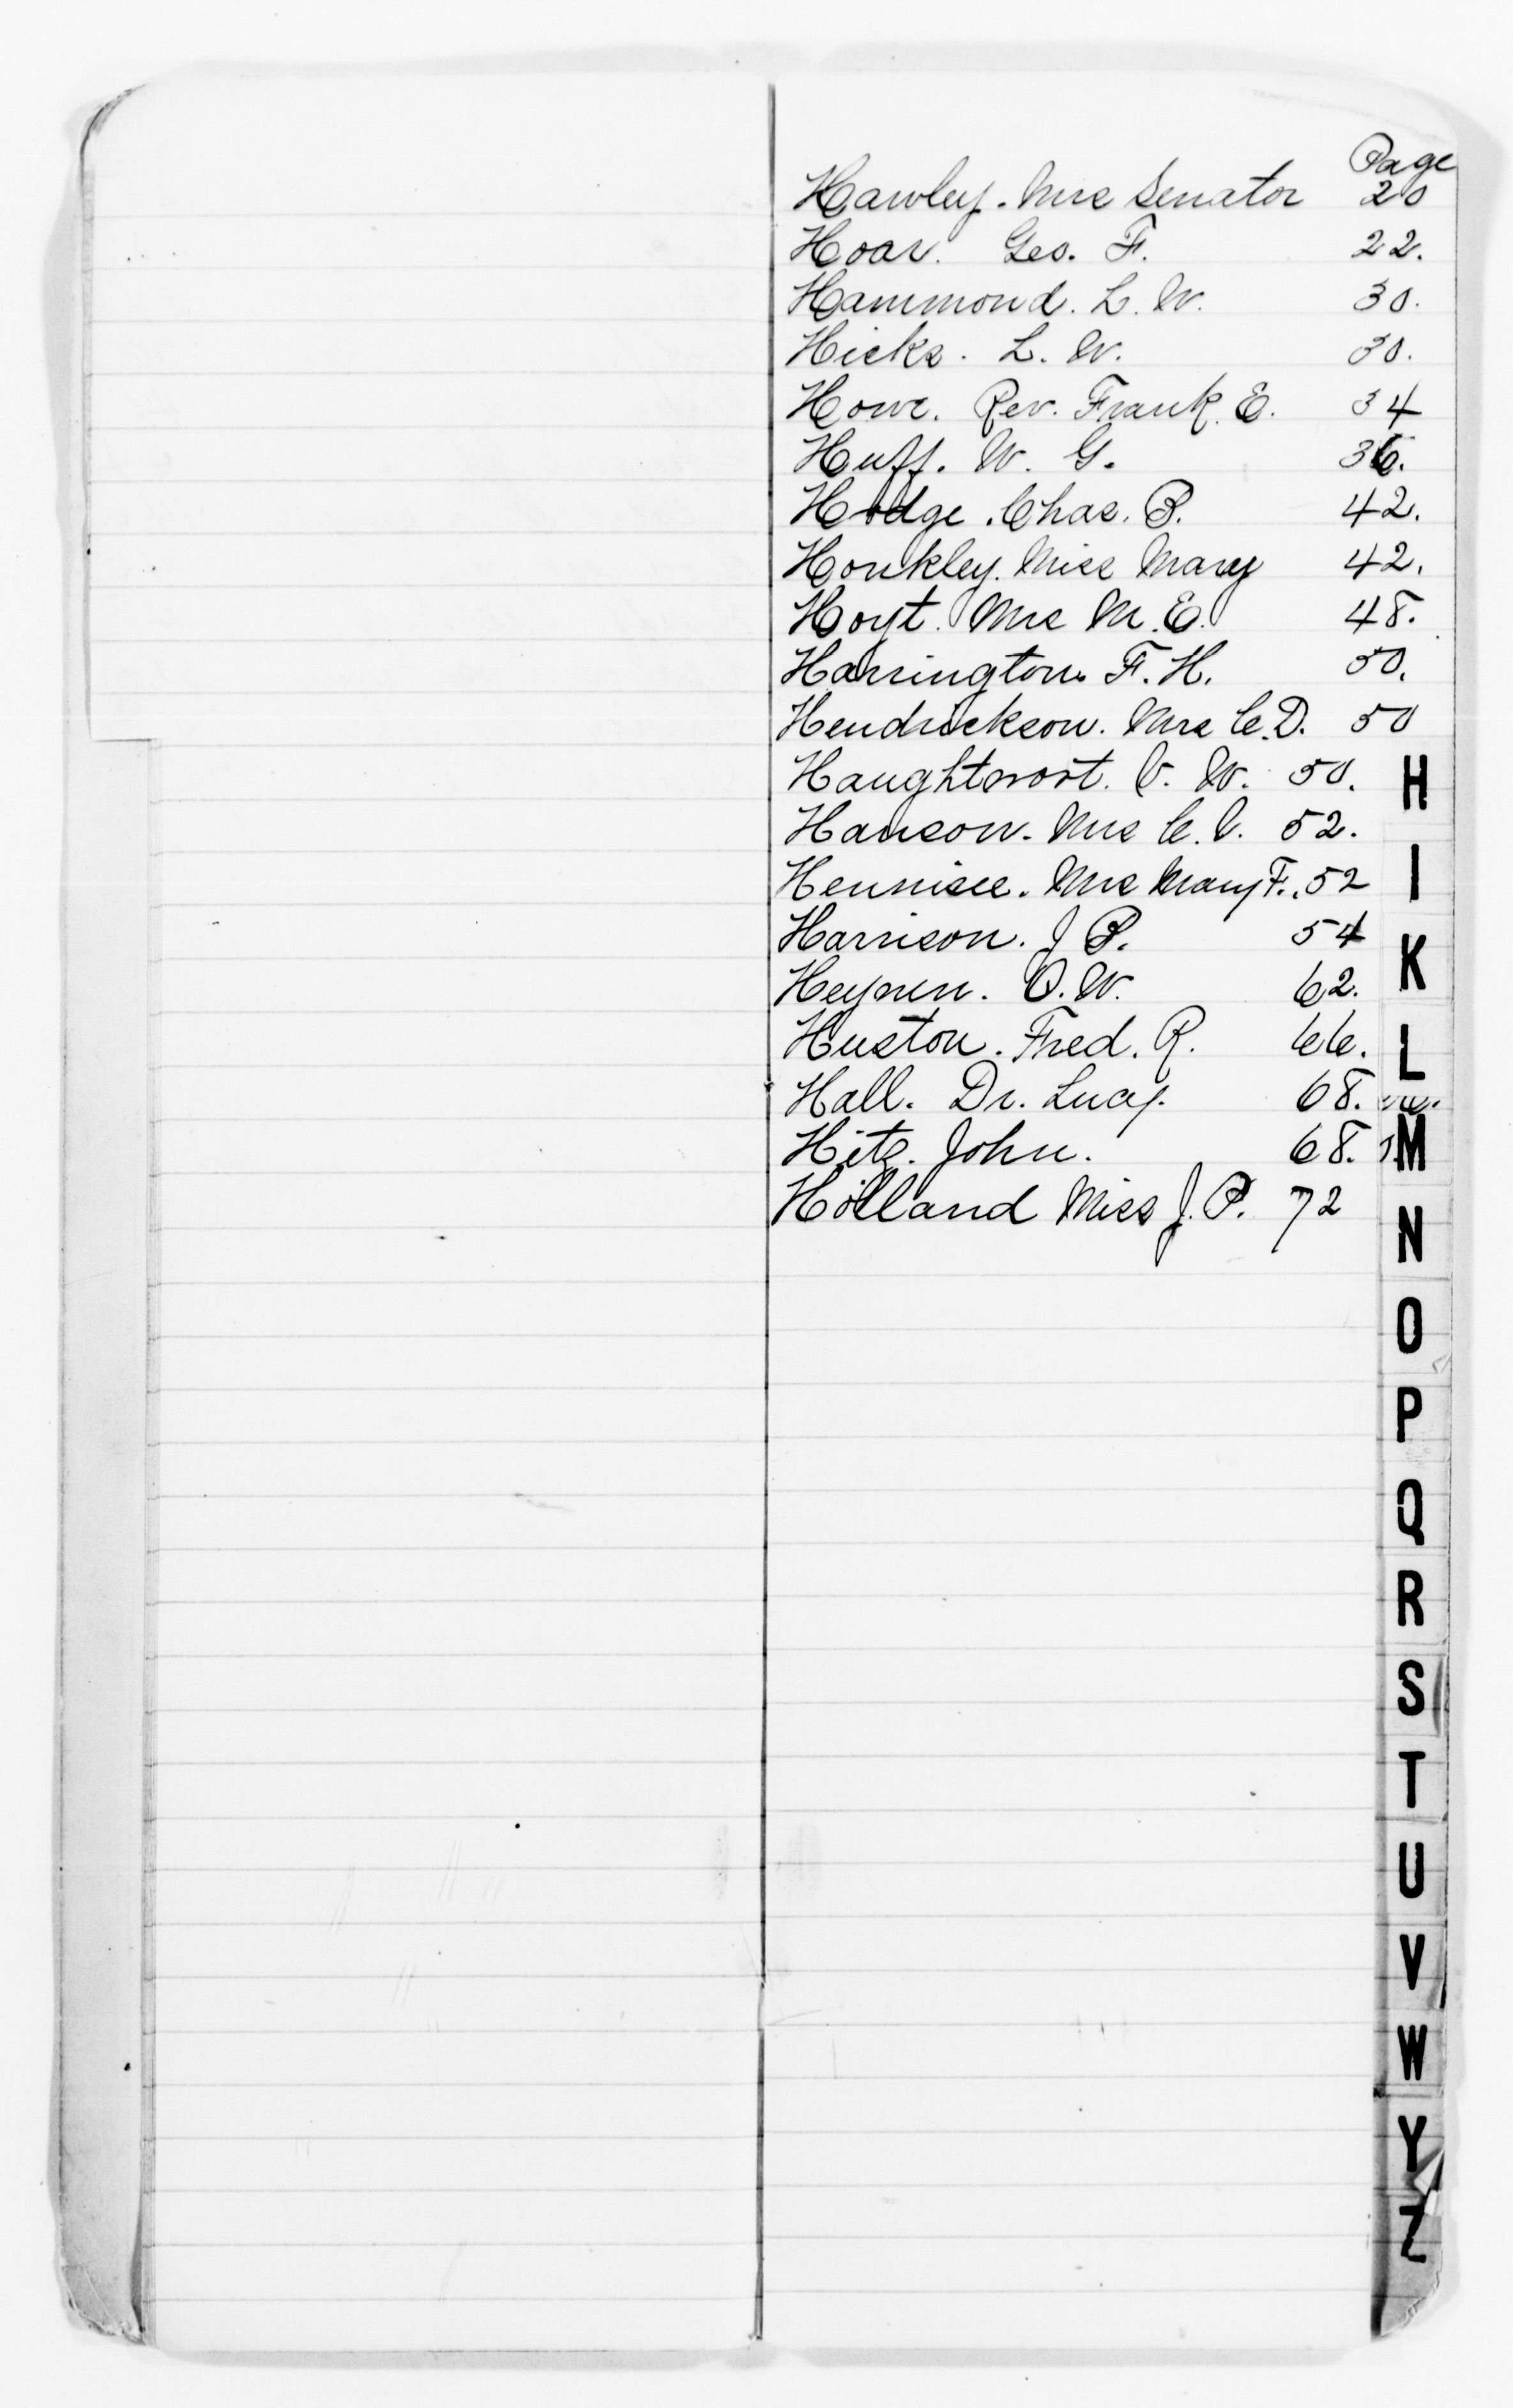 Page
Hawley. Mrs Senator 20
Hoar. Geo. F. 22.
Hammond. L. W. 30.
Hicks. L. W. 30.
Howe. Rev. Frank. E. 34
Huff. W. G. 36.
Hodge. Chas. B. 42.
Honkley. Miss Mary 42.
Hoyt. Mrs M. E. 48.
Harrington. F. H. 50.
Hendrickson. Mrs C. D. 50
Haughtwort. V. W. 50.
Hanson. Mrs C. V. 52.
Hennisee. Mrs Mary F. 52
Harrison. J B. 54
Heynen. O. W. 62.
Huston. Fred. R. 66.
Hall. Dr. Lucy. 68.
Hitz. John. 68.
Holland Miss J. P. 72
H
I
K
L
M
N
O
P
Q
R
S
T
U
V
W
Y
Z